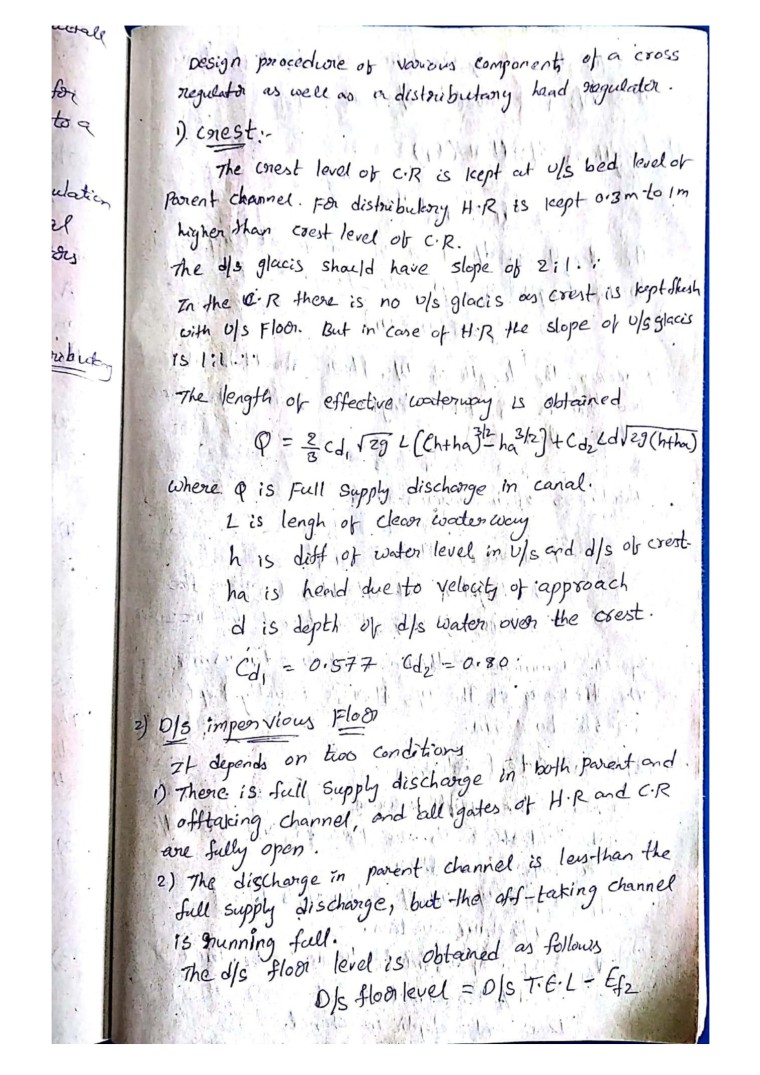 uctall
for
to a
ulation
al
ors
ributory
Design procedure of various components of a cross
regulator as well as a distributary head regulator.
1) crest:-
The crest level of C.R is kept at U/s bed level of
Parent channel. For distributory H.R, is kept 0.3m to 1m
higher than crest level of C.R.
The d/s glacis should have slope of 2:1.
In the C.R there is no U/s glacis as crest is kept flush
with U/s Floor. But in case of H.R the slope of U/s glacis
is 1:1.
The length of effective waterway is obtained
Q = 2/3 Cd₁ √2g L[(h+ha)^3/2 - ha^3/2] + Cd₂ Ld√2g(h+ha)
where Q is Full Supply discharge in canal.
L is lengh of clear water way
h is diff. of water level in U/s and d/s of crest.
ha is head due to velocity of approach
d is depth of d/s water over the crest.
Cd₁ = 0.577 Cd₂ = 0.80
2) D/s impervious Floor
It depends on two conditions
1) There is full supply discharge in both parent and
offtaking channel, and all gates of H.R and C.R
are fully open.
2) The discharge in parent channel is less than the
full supply discharge, but the off-taking channel
is running full.
The d/s floor level is obtained as follows
D/s floor level = D/s T.E.L - Ef₂